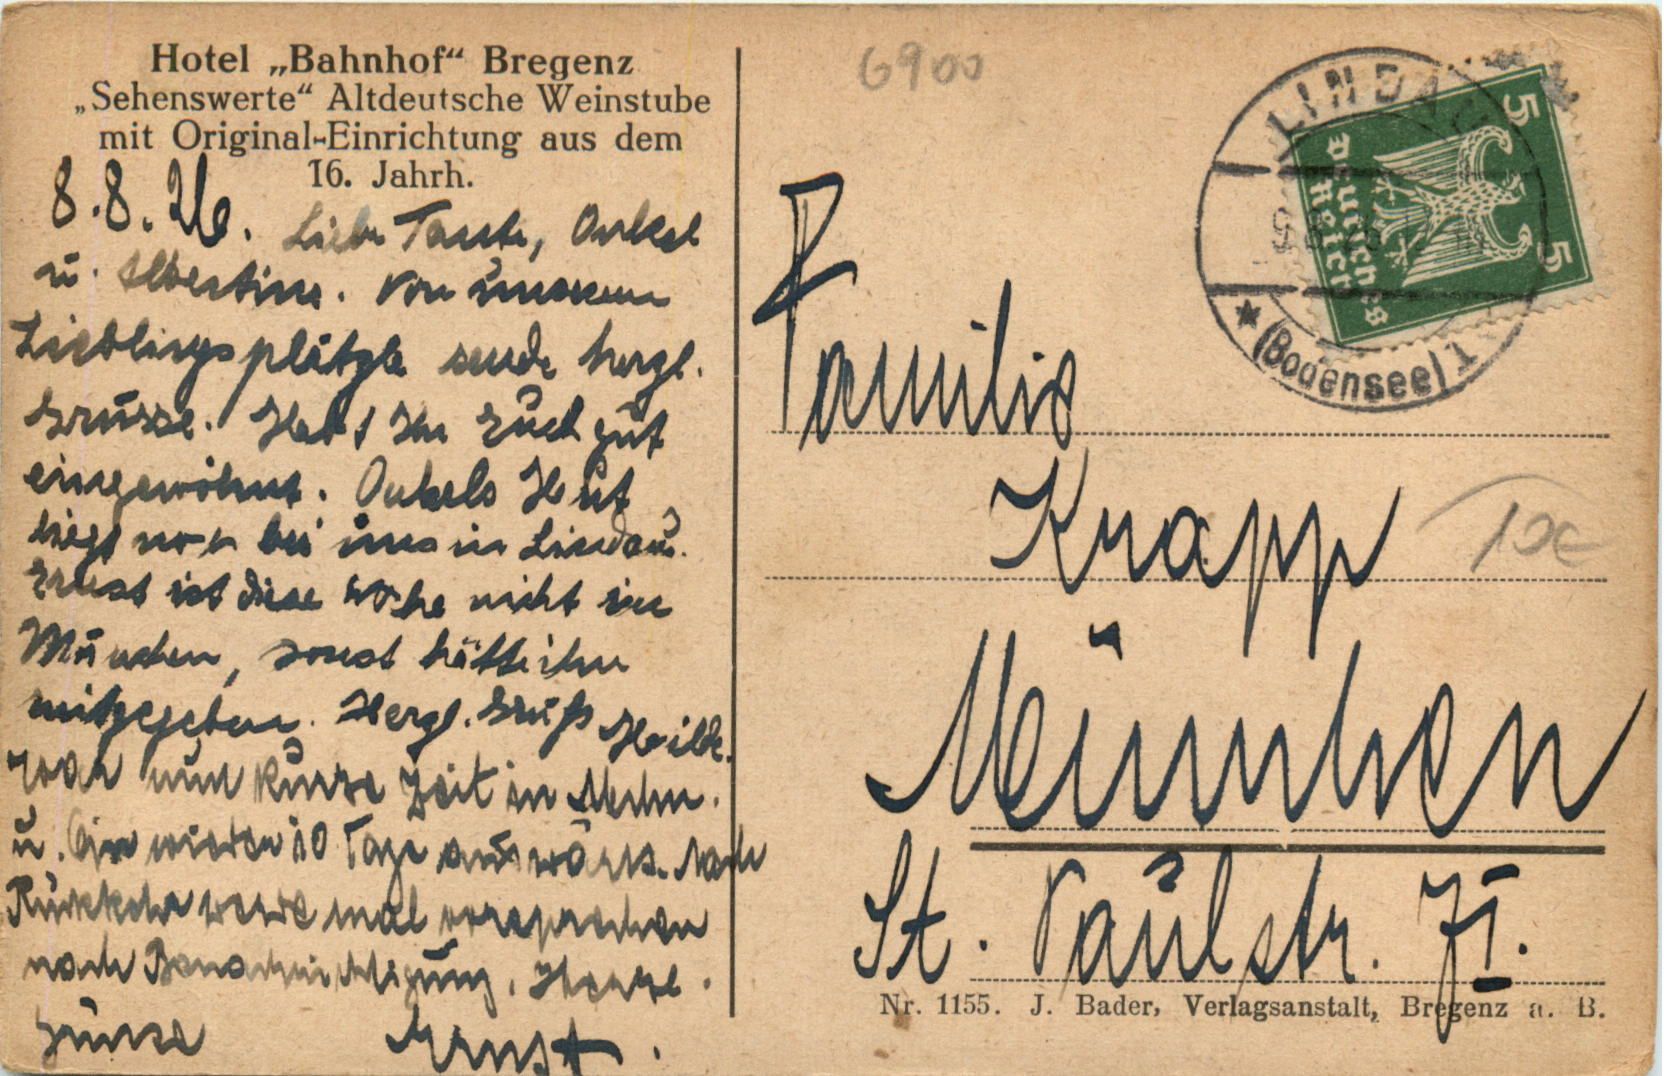 Hotel „Bahnhof“ Bregenz
„Sehenswerte“ Altdeutsche Weinstube
mit Original-Einrichtung aus dem
16. Jahrh.
8.8.26. Liebe Tante, Onkel
u. Albertine. Von unserem
Lieblingsplätzle sende herzl.
Grüsse. Habt Ihr Euch gut
eingewöhnt. Onkels Hut
liegt noch bei uns in Lindau.
Ernst ist diese Woche nicht in
München, sonst hätte ihn
mitgegeben. Herzl. Gruß Hilde.
war nun kurze Zeit in
u. bin wieder 10 Tage auswärts. Nach
Rückkehr werde mal vorsprechen
nach Benachrichtigung. Herzl.
Grüsse Ernst.
6900
LINDAU
(Bodensee) 1
5
Deutsches Reich
5
Familie
Knapp
10€
München
St. Paulstr. 7/I.
Nr. 1155. J. Bader, Verlagsanstalt, Bregenz a. B.